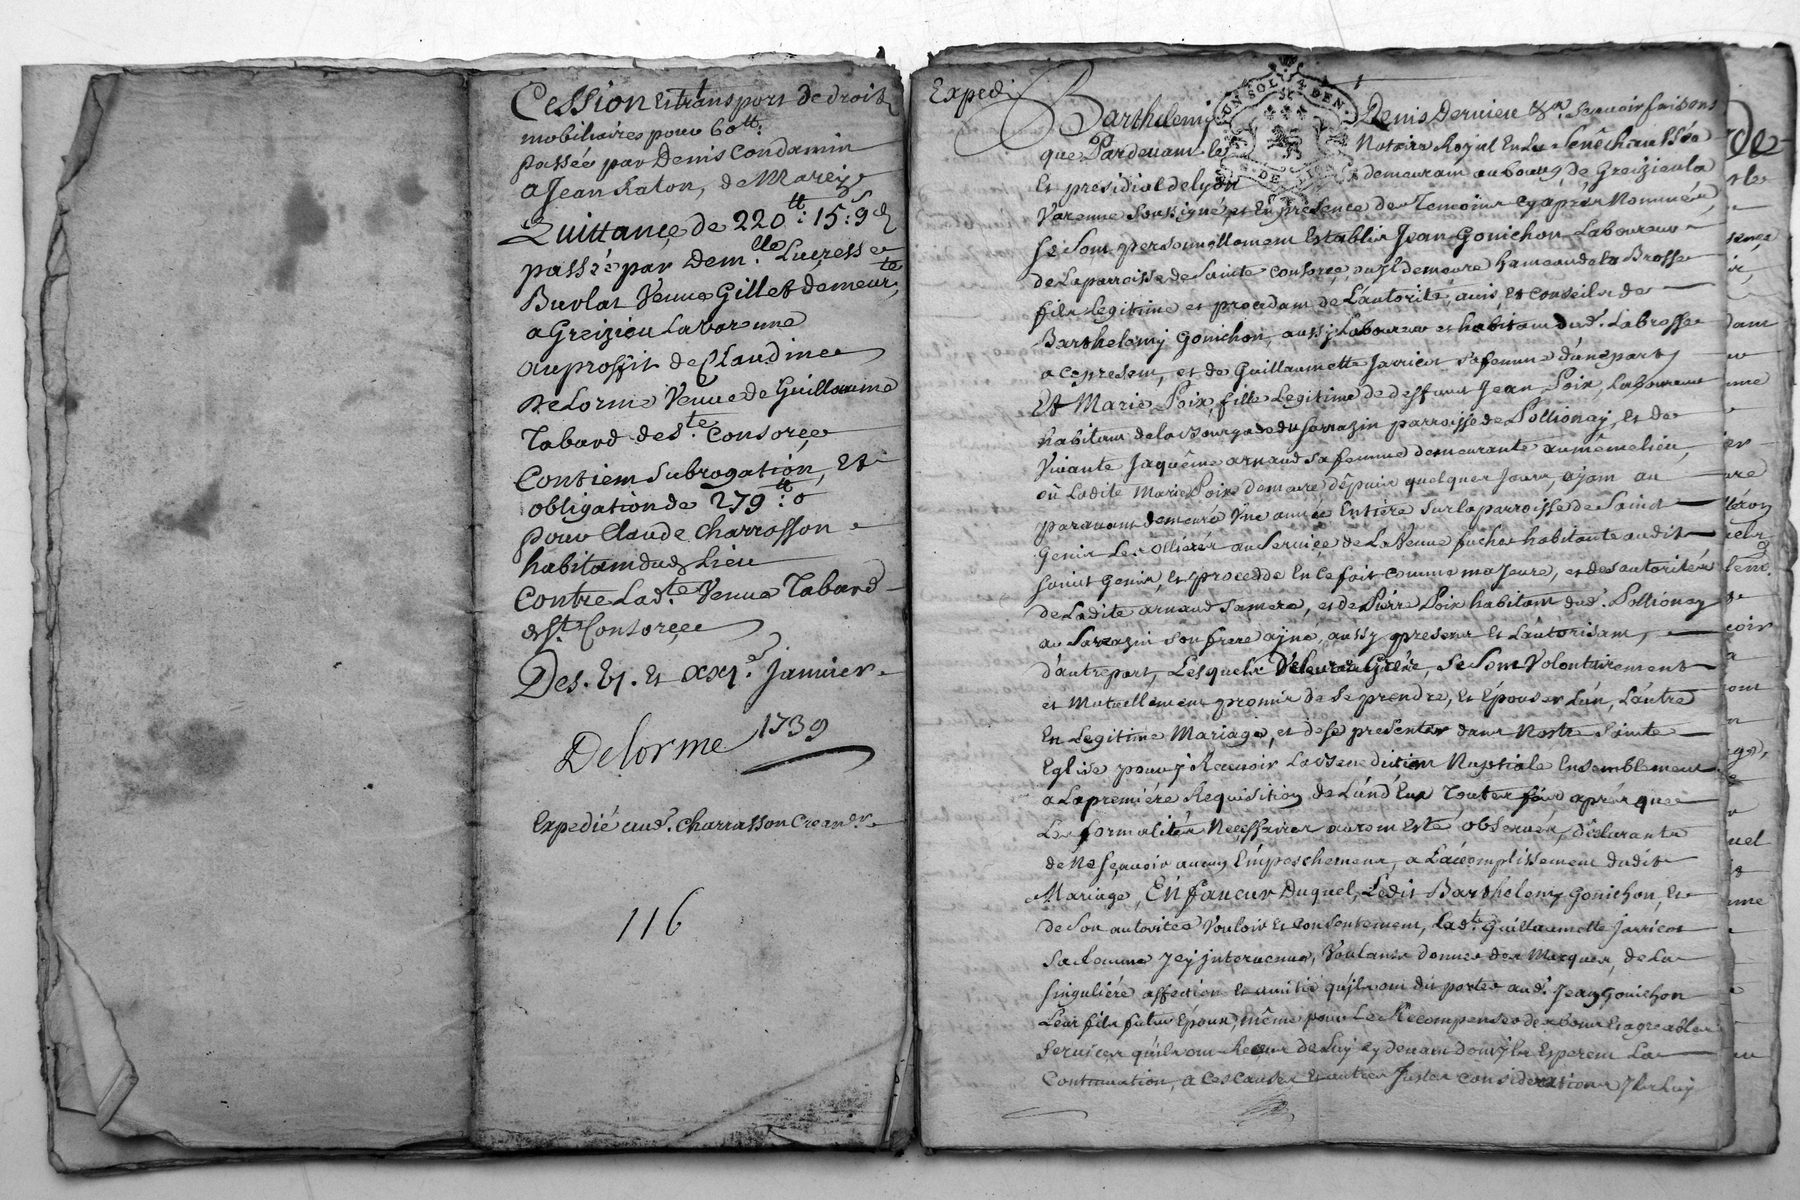 Cession et transport de droits
mobiliaires pour 60 tt.
passée par Denis Condamin
a Jean Raton, de Marcy
Quittance de 220 tt: 15: 9 d
passée par Dem.lle Lucresse
Burlat Veuve Gillet demeur.te
a Greizieu Lavarenne
au proffit de Claudine
Delorme Veuve de Guillaume
Tabard de s.te Consorce
Contient subrogation, Et
obligation de 279 tt: 0
pour Claude Charrasson
habitant dud Lieu
Contre Lad.te Veuve Tabard
de s.te Consorce
Des. 6j. Et xxj.e Janvier
1739
Delorme
Expedié aud. Charrasson Crean.er
116
Exped.
Barthelemy Denis Dervieu &a. Scavoir faisons
que Pardevant le Notaire Royal En La Sénéchaussée
Et presidial de Lyon demeurant au bourg de Greizieu la
Varenne soussigné, et En presence des Temoins cy apres Nommés,
se sont personnellement Establis Jean Gonichon Laboureur
de La parroisse de Sainte Consorce, ou jl demeure hameau de la Brosse
fils Legitime et procedant de L'autorité, avis, Et Conseils de
Barthelemy Gonichon, aussy Laboureur et habitant dud. Labrosse
a ce present, et de Guillaumette Jarricot sa femme d'une part,
Et Marie Poix, fille Legitime de deffunt Jean Poix, Laboureur
habitant de la Bourgade du Sarrazin parroisse de Pollionay, Et de
Vivante Jaquême arnaud sa femme demeurante au même lieu,
où Ladite Marie Poix demeure depuis quelques Jours, ajant au
paravant demeuré Une année Entiére sur la parroisse de Saint
Genis Les Olliérés au Service de La Veuve fuchet habitante audit
Saint Genis, Et procedde En ce fait comme majeure, et des autorités
de Ladite arnaud sa mere, et de Pierre Poix habitant dud. Pollionay
au Sarrazin son frere ayné, aussy present Et L'autorisant,
d'autre part, Lesquels de leur Gré, se sont Volontairement
et Mutuellement promis de se prendre, Et Épouser L'un, L'autre
En Legitime Mariage, et de se presenter dans Nostre Sainte
Eglise pour y Recevoir La Benediction Nuptiale Ensemblement
a La premiére Requisition de L'un d'Eux Toutes fois, aprés que
Les formalités Necessaires auront Esté observées, déclarants
de Ne sçavoir aucun Empeschement, a L'accomplissement dudit
Mariage, En faveur Duquel, Ledit Barthelemy Gonichon, Et
de Son autorité Vouloir Et Consentement, lad.te Guillaumette Jarricot
sa femme Jcy jntervenue, Voulants donner des Marques, de La
singuliére affection Et amitié qu'jls ont dit porter aud. Jean Gonichon
Leur fils futur Époux, même pour Le Récompenser des bons Et agreables
Services qu'ils ont Receus de Luy cy devant dont jls Esperent La
Continuation, a ces Causes Et autres Justes considerations Jls Luy